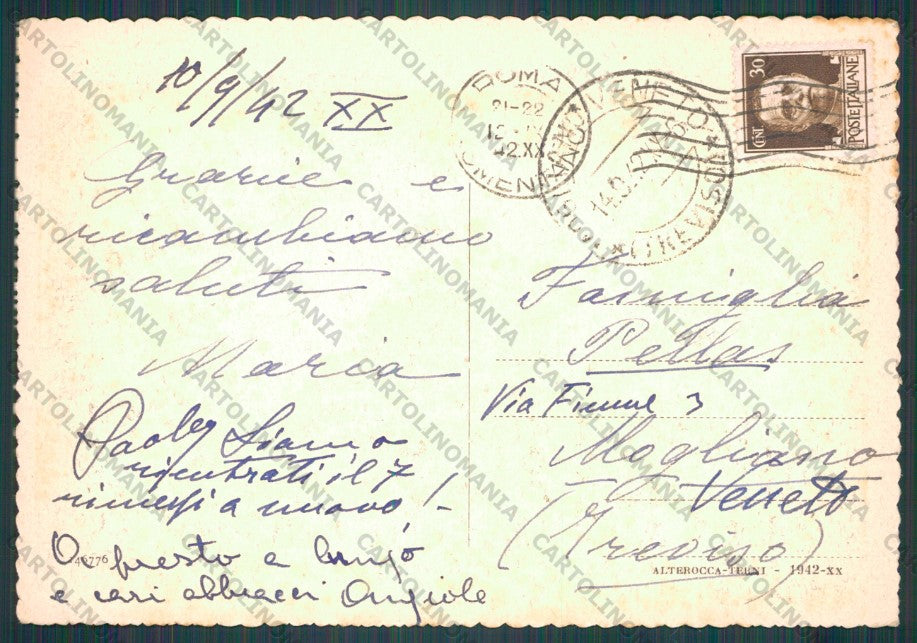 10/9/42 XX
Grazie e
ricambiamo
saluti
Maria
Siamo
rientrati il 7
rimessi a nuovo! -
A presto a
e cari abbracci Angiole
46776
ROMA
21-22
42.XX
MOGLIANO VENETO
TREVISO
CENT 30
POSTE ITALIANE
Famiglia
Pellas
Via Fiume 3
Mogliano
Veneto
(Treviso)
ALTEROCCA-TERNI - 1942-XX
CARTOLINOMANIA